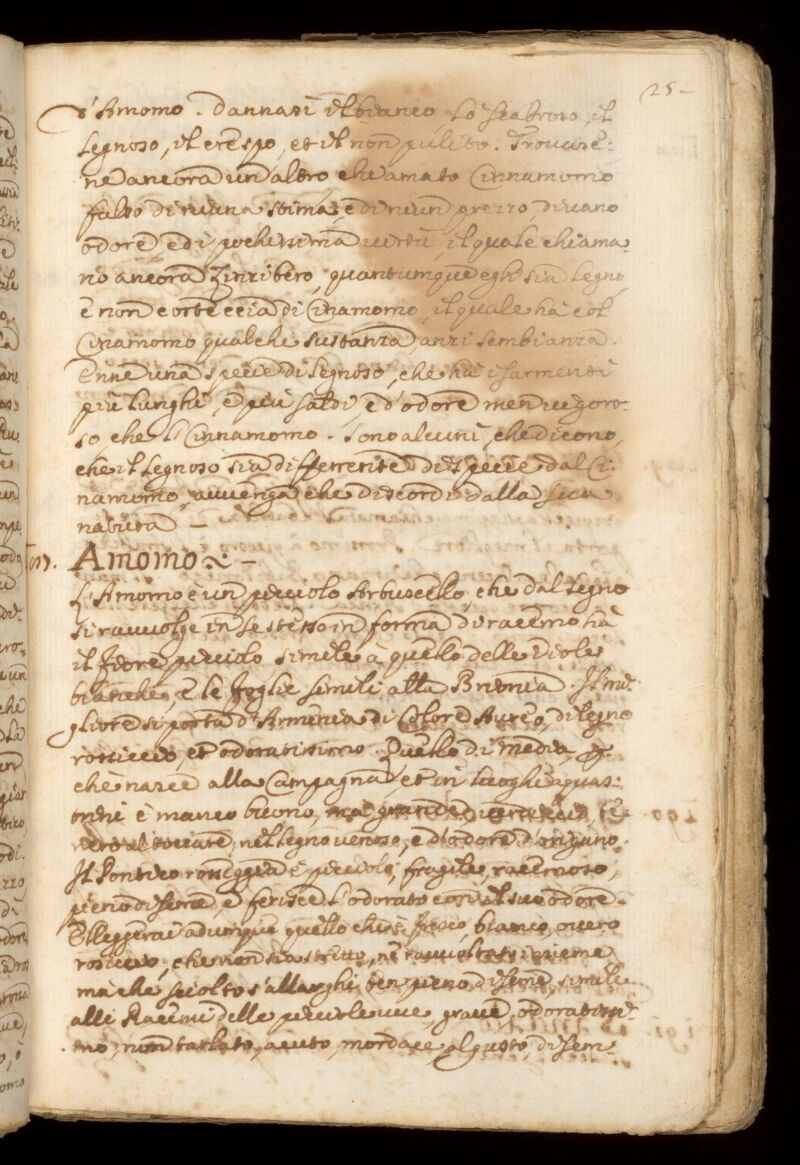 25-
d'Amomo. Dannasi il bianco, lo scabroso, il
legnoso, il crespo, et il non pulito. Trovase:
ne ancora un'altro, chiamato Cinnamomo
falso di niuna stima, e di niun prezzo, di vano
odore, e di pochissima virtù, il quale chiama
no ancora Zinzibero, quantunque egli sia legno,
e non corteccia di Cinamomo, il quale hà col
Cinamomo qualche sustanza, anzi sembianza.
Enne una specie di legnoso, che hà i sarmenti
più lunghi, e più saldi, e d'odore men vigoro-
so che 'l Cinnamomo. Sono alcuni, che dicono,
che il legnoso sia differente di specie dal Ci:
namomo, avvenga che discordi dalla sua
natura -
Amomo -
L'Amomo è un picciolo Arbuscello, che dal legno
si ravvolge in se stesso in forma di racemo hà
il fiore picciolo simile à quello delle viole
bianche, e le foglie simili alla Brionia. Il mi:
gliore si porta d'Armenia di Colore Aureo, di legno
rossiccio, et odoratissimo. Quello di media,
che nasce alla Campagna et in luoghi aquas:
trini è manco buono, ma grande di
al toccare, nel legno venoso, e d'odore d'origano.
Il Pontico rosseggia è picciolo, fragile, racemoso,
pieno di seme, e ferisce l'odorato con il suo odore.
Elleggerai adunque quello che sia fresco, bianco, overo
rossiccio, che non sia stretto, ne ravvoltato insieme
ma che sciolto s'allarghi, ben pieno di seme, simile
alli Racemi delle picciole uve, grave, odoratissi:
mo, non tarlato, acuto, mordace al gusto, di sem-